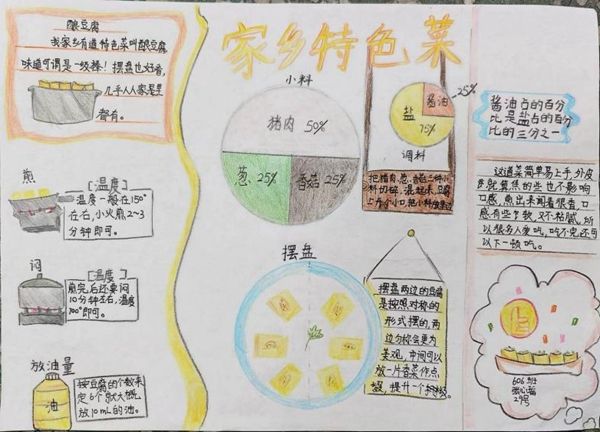 家乡特色菜
酿豆腐
我家乡有道特色菜叫酿豆腐
味道可谓是一级棒！摆盘也好看，
几乎人人家里
都有。
煎
[温度]
温度一般在150°
左右，小火煎2~3
分钟即可。
闷
[温度]
煎完后还要闷
10分钟左右，温度
100°即可。
放油量
油
按豆腐的个数来
定6个就大概
放10mL的油。
小料
猪肉 50%
葱 25%
香菇 25%
酱油
25%
盐
75%
调料
把猪肉、葱、香菇三种小
料切碎，混起来，豆腐
上方个小口，把小料放里边
摆盘
摆盘两边的豆腐
是按照对称的
形式摆的，两
边对称会更为
美观，中间可以
放一片香菜作点
缀，提升一个档次。
酱油占的百分
比是盐占的百分
比的三分之一
这道菜简单易上手，外皮
煎焦的些也不影响
口感，煎出来闻着很香，口
感有些Q软，又不粘腻，所
以很多人爱吃，吃不完还可
以下一顿吃。
606班
29号